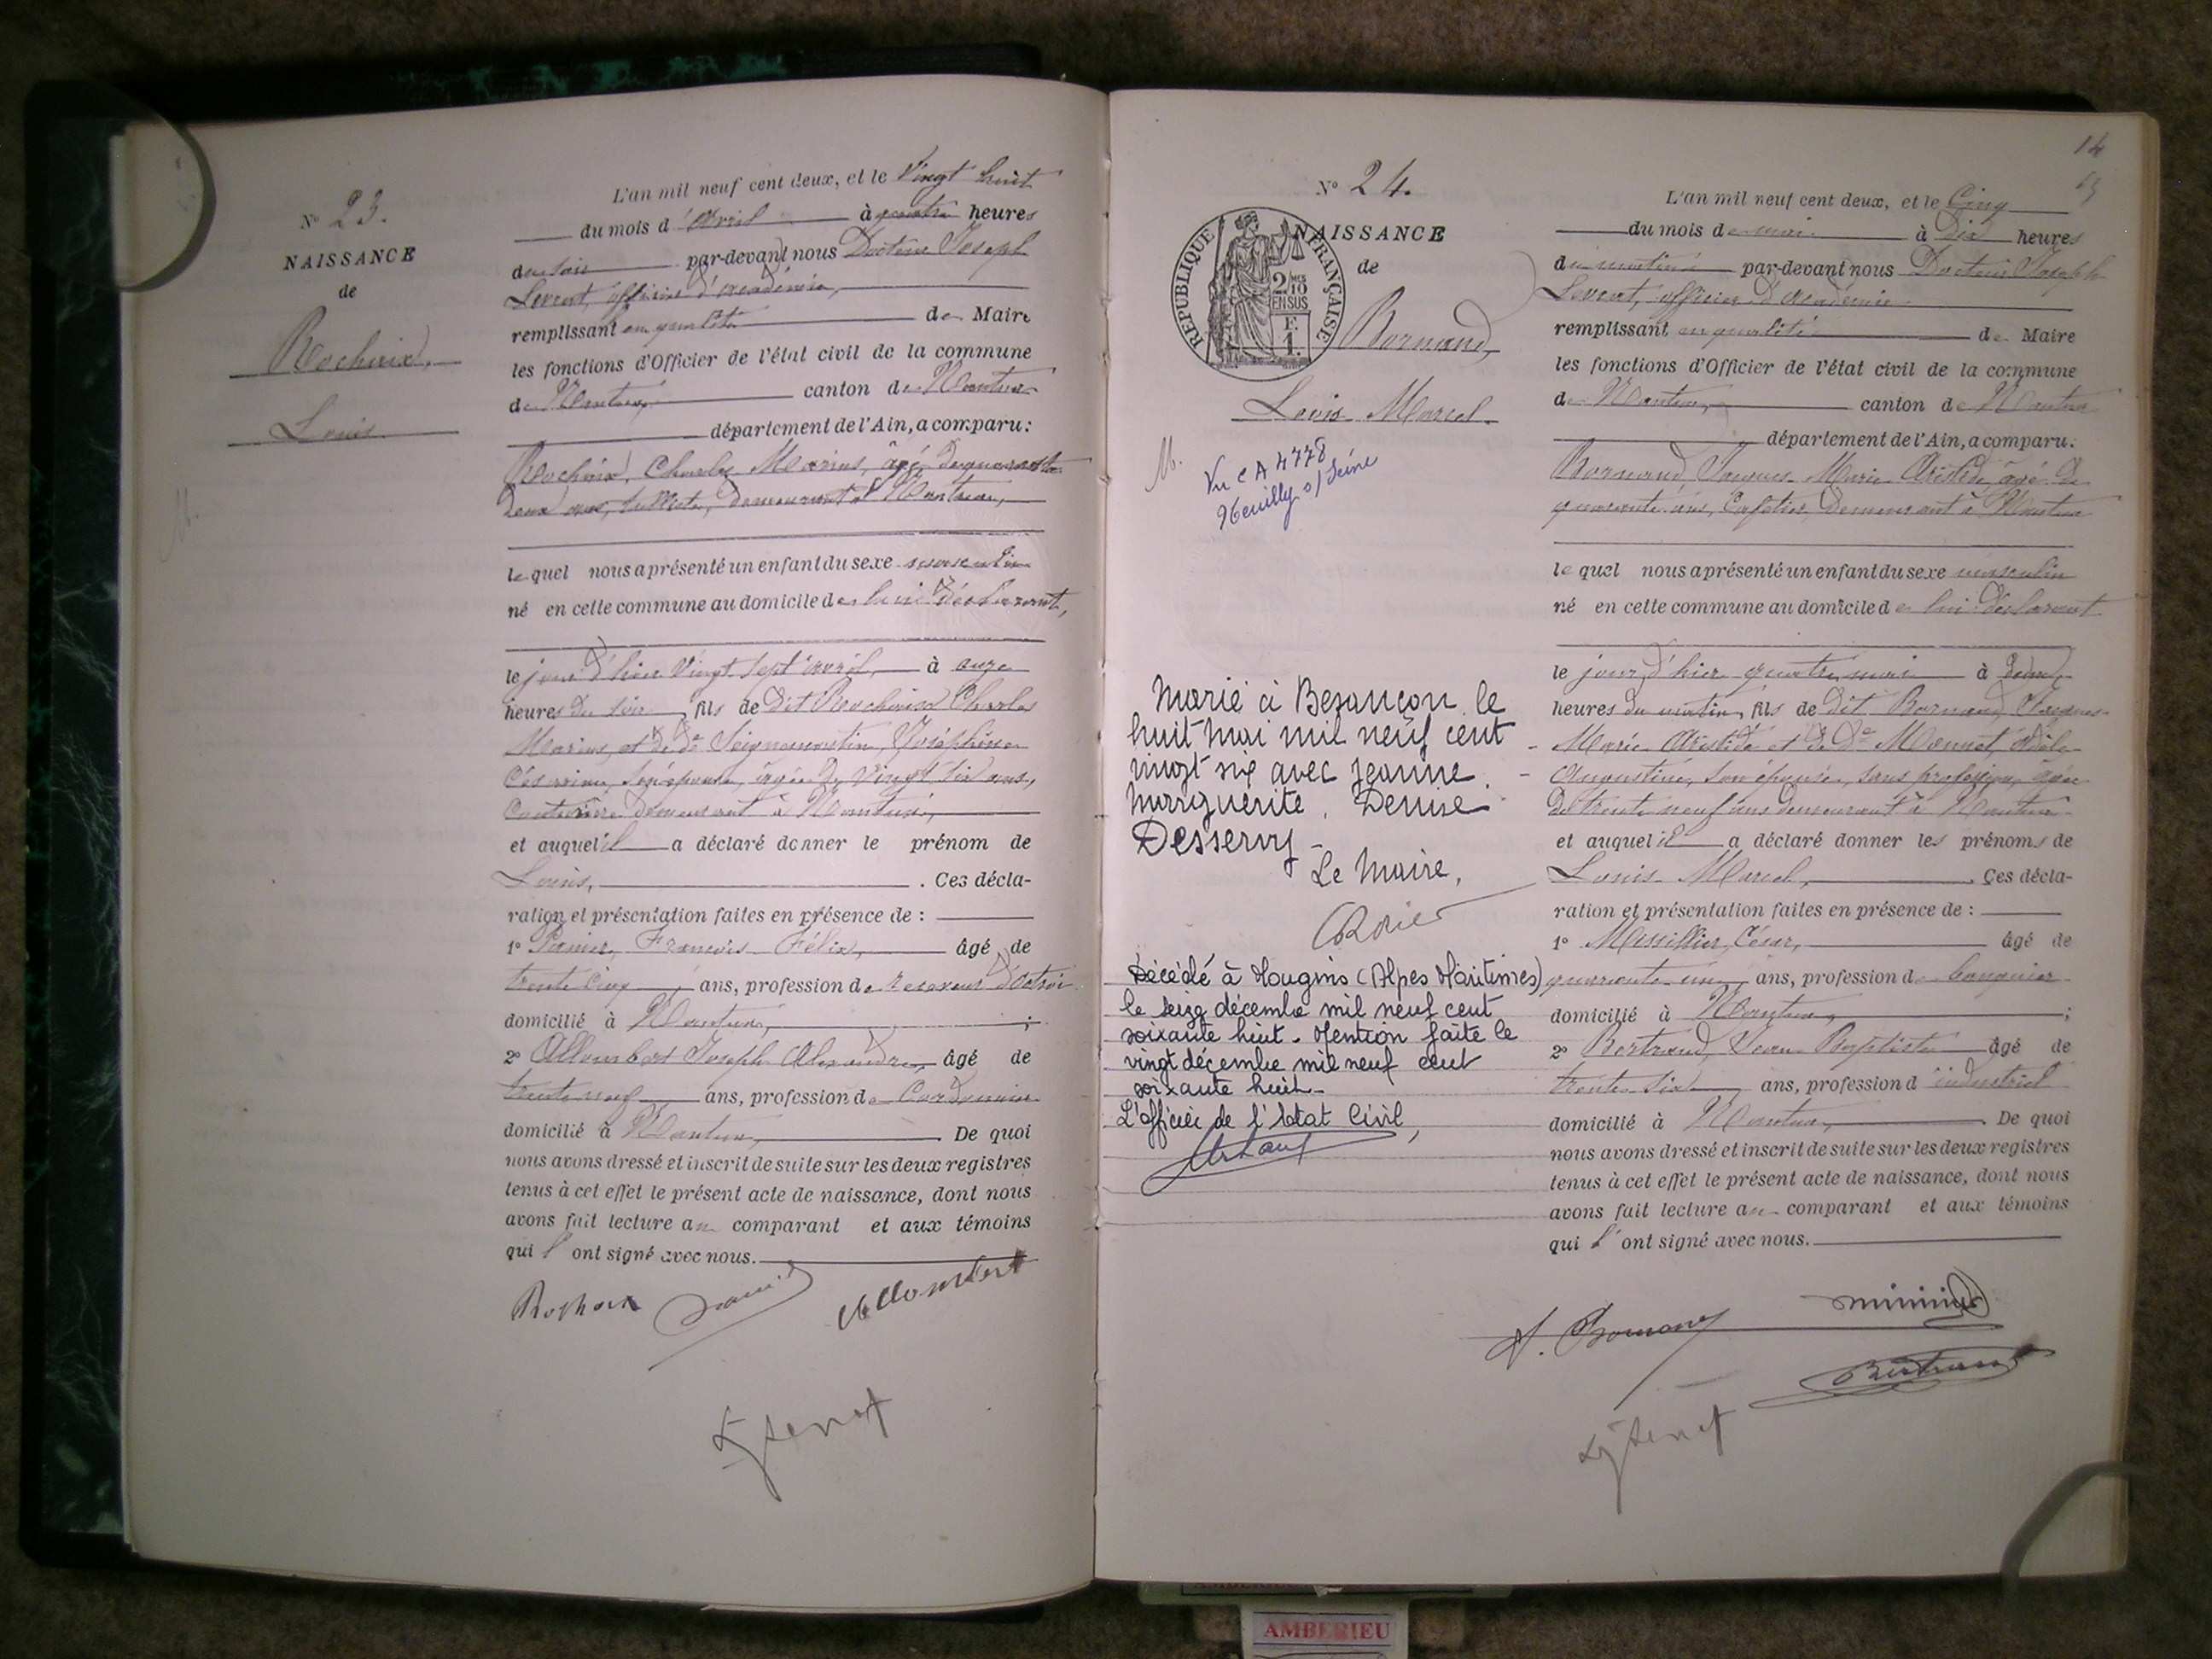 N° 23.
NAISSANCE
de
Rochaix,
Louis
L'an mil neuf cent deux, et le Vingt huit
du mois d'avril à quatre heures
du soir par-devant nous Docteur Joseph
Levrat, officier d'académie,
remplissant en qualité de Maire
les fonctions d'Officier de l'état civil de la commune
de Nantua, canton de Nantua
département de l'Ain, a comparu:
Rochaix, Charles Marius, âgé de quarante
deux ans, demeurant à Nantua,
lequel nous a présenté un enfant du sexe masculin
né en cette commune au domicile de lui déclarant,
le jour d'hier Vingt sept avril, à onze
heures du soir, fils de dit Rochaix Charles
Marius, et de de Seignemartin, Joséphine
son épouse, âgée de Vingt six ans,
Couturière demeurant à Nantua,
et auquel il a déclaré donner le prénom de
Louis, . Ces décla-
ration et présentation faites en présence de :
1° François Félix, âgé de
trente cinq ans, profession de receveur d'octroi
domicilié à Nantua, ;
2° Allombert Joseph Alexandre, âgé de
trente neuf ans, profession de Cordonnier
domicilié à Nantua, . De quoi
nous avons dressé et inscrit de suite sur les deux registres
tenus à cet effet le présent acte de naissance, dont nous
avons fait lecture au comparant et aux témoins
qui l'ont signé avec nous.
Rochaix Allombert
14
N° 24.
RÉPUBLIQUE FRANÇAISE
2/10 EN SUS
F.
1.
NAISSANCE
de
Bornand,
Louis Marcel
M.
Vu C A 4778
Neuilly s/ Seine
Marié à Besançon le
huit mai mil neuf cent
vingt six avec Jeanne
Marguerite, Denise
Desservy -
Le Maire,
Décédé à Mougins (Alpes Maritimes)
le seize décembre mil neuf cent
soixante huit - Mention faite le
vingt décembre mil neuf cent
soixante huit -
L'officier de l'Etat Civil,
L'an mil neuf cent deux, et le Cinq
du mois de mai à Dix heures
du matin par-devant nous Docteur Joseph
Levrat, officier d'académie
remplissant en qualité de Maire
les fonctions d'Officier de l'état civil de la commune
de Nantua, canton de Nantua
département de l'Ain, a comparu:
Bornand, Jacques Marie Aristide, âgé de
quarante ans, Cafetier, demeurant à Nantua
lequel nous a présenté un enfant du sexe masculin
né en cette commune au domicile de lui déclarant
le jour d'hier quatre mai à deux
heures du matin, fils de dit Bornand Jacques
Marie Aristide et de de Monnet, Adèle
Augustine, son épouse, sans profession, âgée
de trente neuf ans demeurant à Nantua
et auquel il a déclaré donner les prénoms de
Louis Marcel, . Ces décla-
ration et présentation faites en présence de :
1° César, âgé de
quarante un ans, profession de banquier
domicilié à Nantua, ;
2° Bertrand, Jean Baptiste âgé de
trente six ans, profession d'industriel
domicilié à Nantua, . De quoi
nous avons dressé et inscrit de suite sur les deux registres
tenus à cet effet le présent acte de naissance, dont nous
avons fait lecture au comparant et aux témoins
qui l'ont signé avec nous.
A. Bornand
Bertrand
AMBERIEU